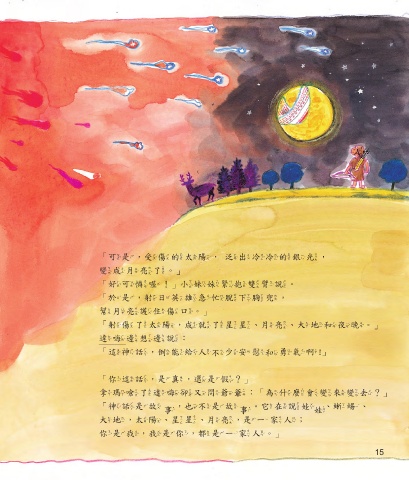 「可是，受傷的太陽，送出冷冷的銀光，
變成月亮了。」
「好可憐喔！」小妹妹緊抱雙臂說，
「於是，射日英雄急忙脫下胸兜，
幫月亮護住傷口。」
「射傷了太陽，成就了星星、月亮、大地和夜晚。」
達嗨邊想邊說：
「這神話，倒能給人不少安慰和勇氣啊！」
「你這話，是真，還是假？」
拿瑪嗆了達嗨卻又問爺爺：「為什麼會變來變去？」
「神話是故事，也不是故事，它在說娃娃、蜥蜴、
大地、太陽、星星、月亮，是一家人；
你是我，我是你，都是一家人。」
15